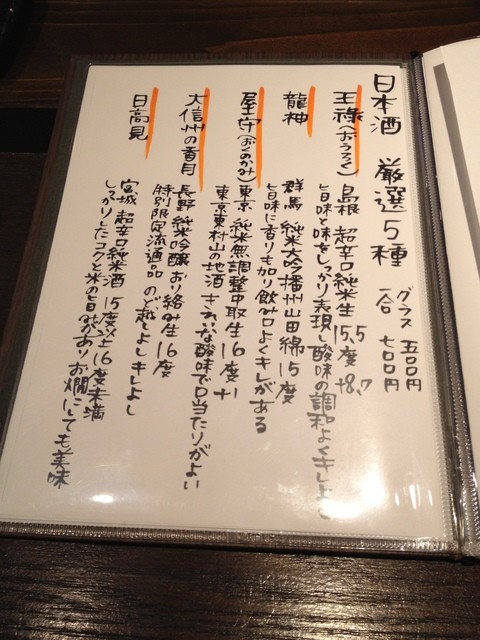 日本酒 厳選5種
グラス 五〇〇円
一合 七〇〇円
王祿(おうろく)
島根 超辛口純米生 15,5度 +8,7
旨味と味をしっかり表現し酸味の調和よくキレよし
龍神
群馬 純米大吟播州山田錦 15度
旨味に香りも加り飲み口よくキレがある
屋守(おくのかみ)
東京 純米無調整中取生 16度
東京東村山の地酒 きれいな酸味で口当たりがよい
大信州の香月
長野 純米吟醸おり絡み生 16度
特別限定流通品 のど越しよしキレよし
日高見
宮城 超辛口純米酒 15度以上16度未満
しっかりしたコクと米の旨みがありお燗にしても美味